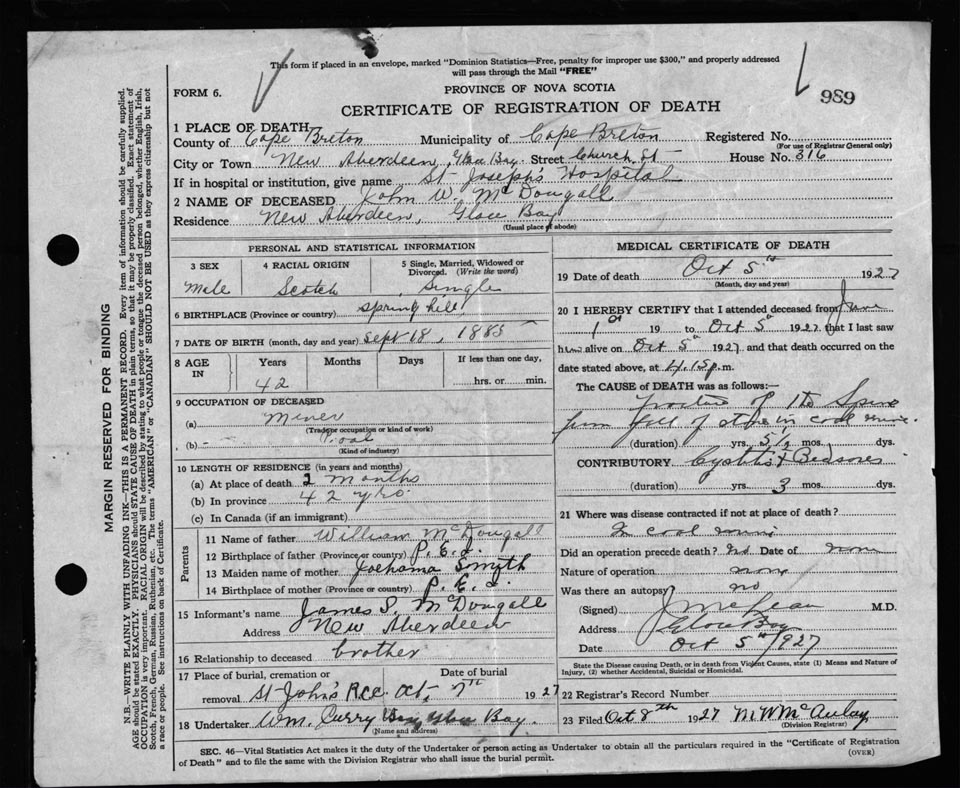 This form if placed in an envelope, marked "Dominion Statistics—Free, penalty for improper use $300," and properly addressed
will pass through the Mail "FREE"
989
FORM 6.
PROVINCE OF NOVA SCOTIA
CERTIFICATE OF REGISTRATION OF DEATH
1 PLACE OF DEATH
County of Cape Breton Municipality of Cape Breton Registered No.
(For use of Registrar General only)
City or Town New Aberdeen, Glace Bay Street Church St House No. 816
If in hospital or institution, give name St Joseph's Hospital
2 NAME OF DECEASED John W. McDougall
Residence New Aberdeen, Glace Bay
(Usual place of abode)
MARGIN RESERVED FOR BINDING
N.B.—WRITE PLAINLY WITH UNFADING INK—THIS IS A PERMANENT RECORD. Every item of information should be carefully supplied.
AGE should be stated EXACTLY. PHYSICIANS should STATE CAUSE OF DEATH in plain terms, so that it may be properly classified. Exact statement of
OCCUPATION is very important. RACIAL ORIGIN will be described by stating to what people or tongue the deceased person belonged, whether English, Irish,
Scotch, French, German, Russian, Ruthenian, etc. The terms "AMERICAN" or "CANADIAN" SHOULD NOT BE USED as they express citizenship but not
a race or people. See instructions on back of Certificate.
PERSONAL AND STATISTICAL INFORMATION
3 SEX
Male
4 RACIAL ORIGIN
Scotch
5 Single, Married, Widowed or
Divorced. (Write the word)
Single
6 BIRTHPLACE (Province or country) Spring hill
7 DATE OF BIRTH (month, day and year) Sept 18, 1885
8 AGE
IN
Years Months Days If less than one day,
42 hrs. or min.
9 OCCUPATION OF DECEASED
(a) Miner
(Trade or occupation or kind of work)
(b) Coal
(Kind of industry)
10 LENGTH OF RESIDENCE (in years and months)
(a) At place of death 2 months
(b) In province 42 yrs.
(c) In Canada (if an immigrant)
Parents
11 Name of father William McDougall
12 Birthplace of father (Province or country) P.E.I.
13 Maiden name of mother Smith
14 Birthplace of mother (Province or country) P.E.I.
15 Informant's name James S. McDougall
Address New Aberdeen
16 Relationship to deceased brother
17 Place of burial, cremation or Date of burial
removal St John's Oct 7th 1927
18 Undertaker Wm. Curry Glace Bay.
(Name and address)
MEDICAL CERTIFICATE OF DEATH
19 Date of death Oct 5th 1927
(Month, day and year)
20 I HEREBY CERTIFY that I attended deceased from June
1st 19 to Oct 5th 1927 that I last saw
him alive on Oct 5th 1927 and that death occurred on the
date stated above, at 4.15 p.m.
The CAUSE OF DEATH was as follows:—
Fracture of the Spine
from fall of stone in coal mine.
(duration) yrs. 5½ mos. dys.
CONTRIBUTORY Cystitis & Bedsores
(duration) yrs. 3 mos. dys.
21 Where was disease contracted if not at place of death?
In coal mine
Did an operation precede death? no Date of none
Nature of operation none
Was there an autopsy? no
(Signed) J McLean M.D.
Address Glace Bay
Date Oct 5th 1927
State the Disease causing Death, or in death from Violent Causes, state (1) Means and Nature of
Injury, (2) whether Accidental, Suicidal or Homicidal.
22 Registrar's Record Number
23 Filed Oct 8th 1927 M W McAulay
(Division Registrar)
SEC. 46—Vital Statistics Act makes it the duty of the Undertaker or person acting as Undertaker to obtain all the particulars required in the "Certificate of Registration
of Death" and to file the same with the Division Registrar who shall issue the burial permit.
(OVER)